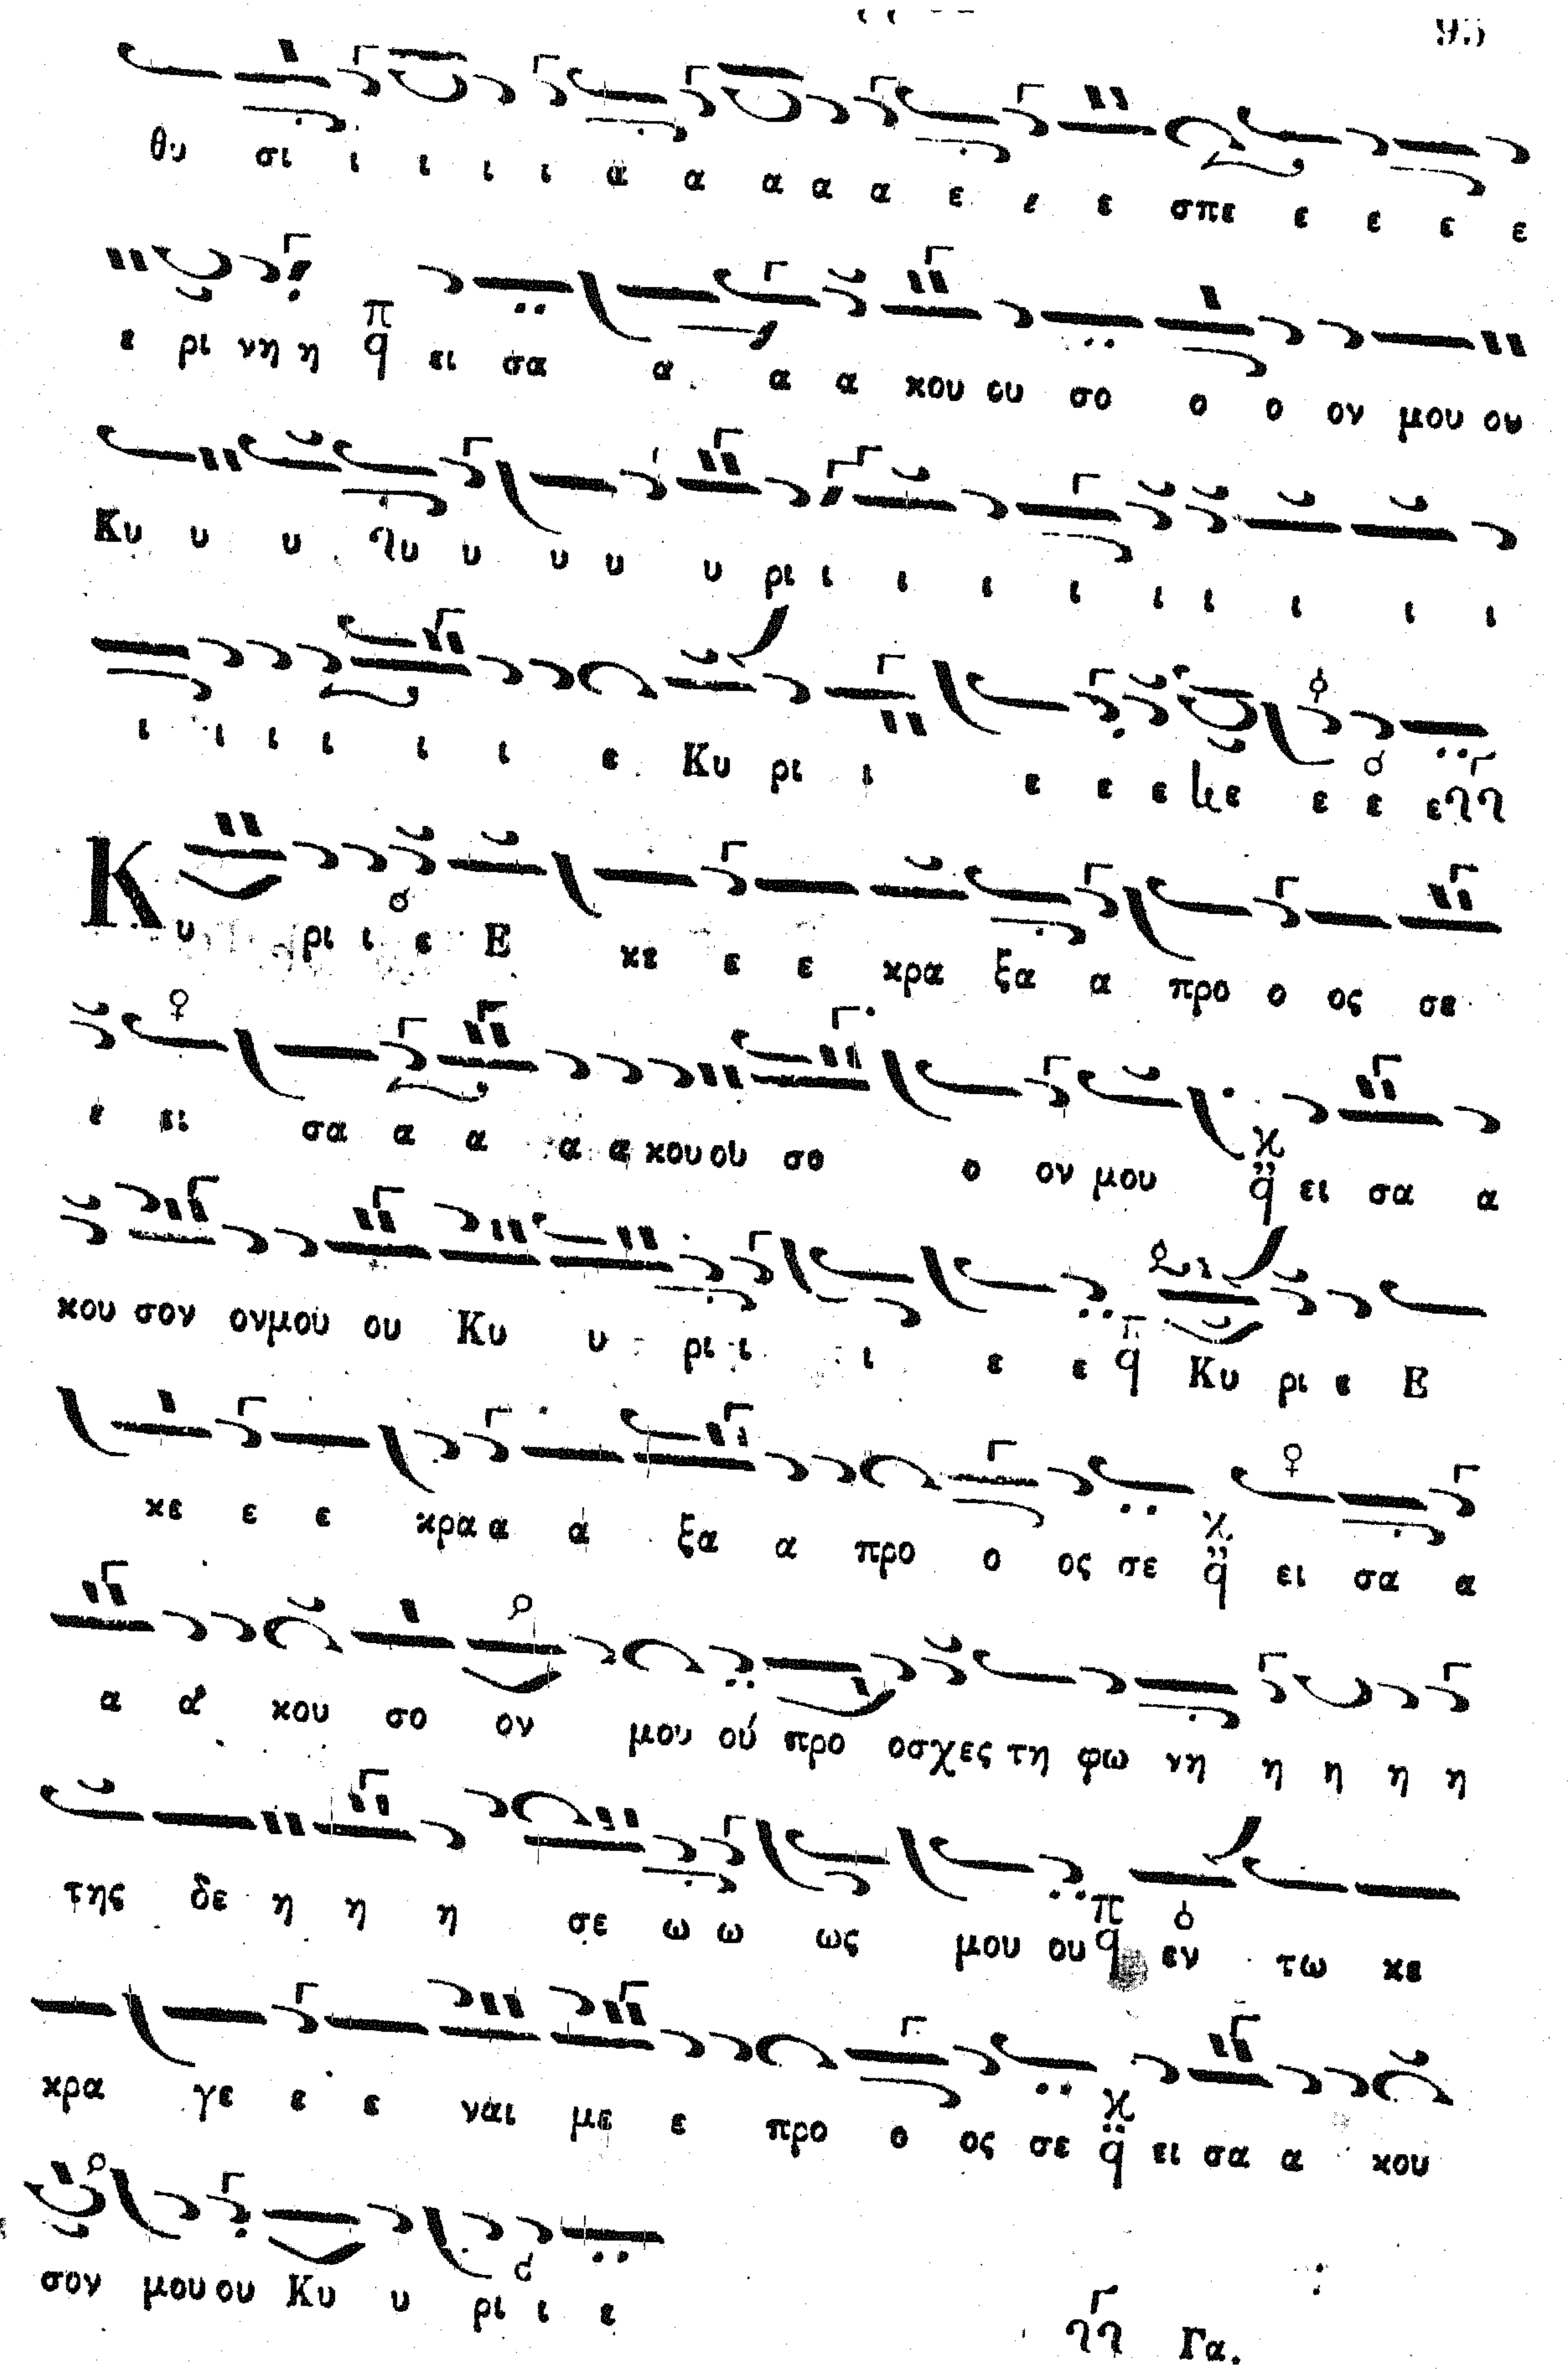 95
θυ σι ι ι ι ι α α α α α ε ε ε σπε ε ε ε ε
ε ρι νη η π q ει σα α α α κου ου σο ο ο ον μου ου
Κυ υ υ υ υ υ υ υ ρι ι ι ι ι ι ι ι ι ι
ι ι ι ι ι ι ε Κυ ρι ι ε ε ε κε ε ε ε
Κυ ρι ι ε Ε κε ε ε κρα ξα α προ ο ος σε
ε ει σα α α α α κου ου σο ο ον μου χ q ει σα α
κου σον ονμου ου Κυ υ ρι ι ι ε ε π q Κυ ρι ε Ε
κε ε ε κρα α α ξα α προ ο ος σε χ q ει σα α
α α κου σο ον μου ού προ οσχες τη φω νη η η η η
της δε η η η σε ω ω ως μου ου π q εν τω κε
κρα γε ε ε ναι με ε προ ο ος σε χ q ει σα α κου
σον μου ου Κυ υ ρι ι ε
Γα.